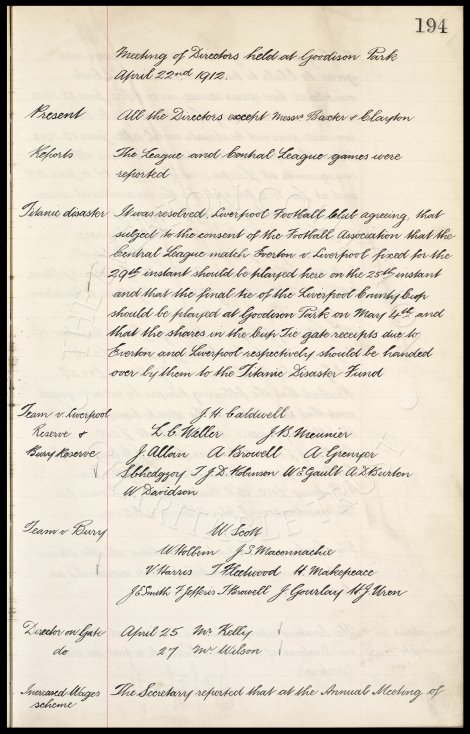 194
Meeting of Directors held at Goodison Park
April 22nd 1912.
Present All the Directors except Messrs Baxter & Clayton
Reports The League and Central League games were
reported
Titanic disaster It was resolved, Liverpool Football Club agreeing, that
subject to the consent of the Football Association that the
Central League match Everton v Liverpool fixed for the
29th instant should be played here on the 25th instant
and that the final tie of the Liverpool County Cup
should be played at Goodison Park on May 4th and
that the shares in the Cup Tie gate receipts due to
Everton and Liverpool respectively should be handed
over by them to the Titanic Disaster Fund
Team v Liverpool J. H. Caldwell
Reserve & L. C. Weller J. B. Meunier
Bury Reserve J Allan A Browell A Grenyer
S. Chedgzoy T. J. D. Robinson W E Gault A. D. Burton
W. Davidson
Team v Bury W. Scott
W. Holbem J. S. Maconnachie
V Harris T Fleetwood H. Makepeace
J. E Smith F Jefferis T Browell J Gourlay W J Uren
Director on Gate April 25 Mr Kelly
do 27 Mr Wilson
Increased Wages The Secretary reported that at the Annual Meeting of
scheme